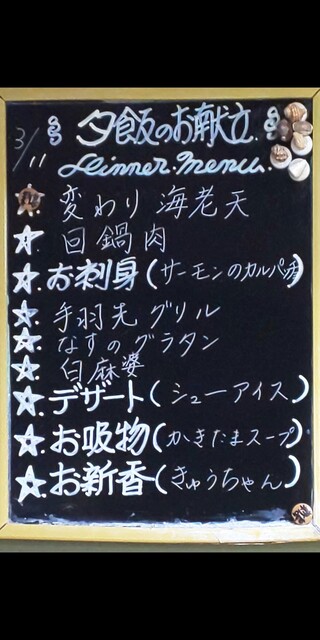 夕飯のお献立
3/11
Dinner menu.
変わり海老天
回鍋肉
お刺身(サーモンのカルパ)
手羽先グリル
なすのグラタン
白麻婆
デザート(シューアイス)
お吸物(かきたまスープ)
お新香(きゅうちゃん)